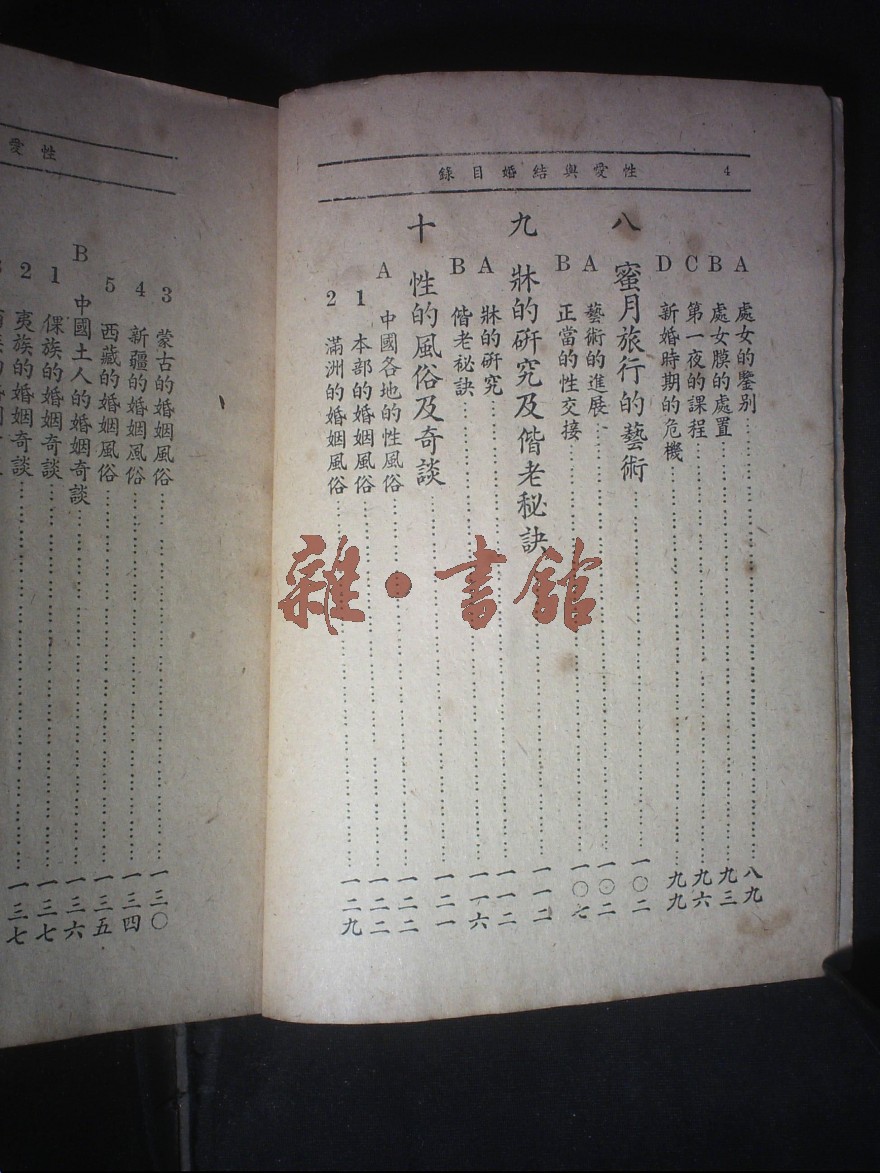 4 性愛與結婚目錄
A 處女的鑒别……八九
B 處女膜的處置……九三
C 第一夜的課程……九六
D 新婚時期的危機……九九
八 蜜月旅行的藝術……一〇二
A 藝術的進展……一〇二
B 正當的性交接……一〇七
九 牀的研究及偕老秘訣……一一二
A 牀的研究……一一二
B 偕老秘訣……一一六
十 性的風俗及奇談……一二一
A 中國各地的性風俗……一二二
1 本部的婚姻風俗……一二二
2 滿洲的婚姻風俗……一二九
性愛
3 蒙古的婚姻風俗……一三〇
4 新疆的婚姻風俗……一三四
5 西藏的婚姻風俗……一三五
B 中國土人的婚姻奇談……一三六
1 倮族的婚姻奇談……一三七
2 夷族的婚姻奇談……一三七
雜·書館